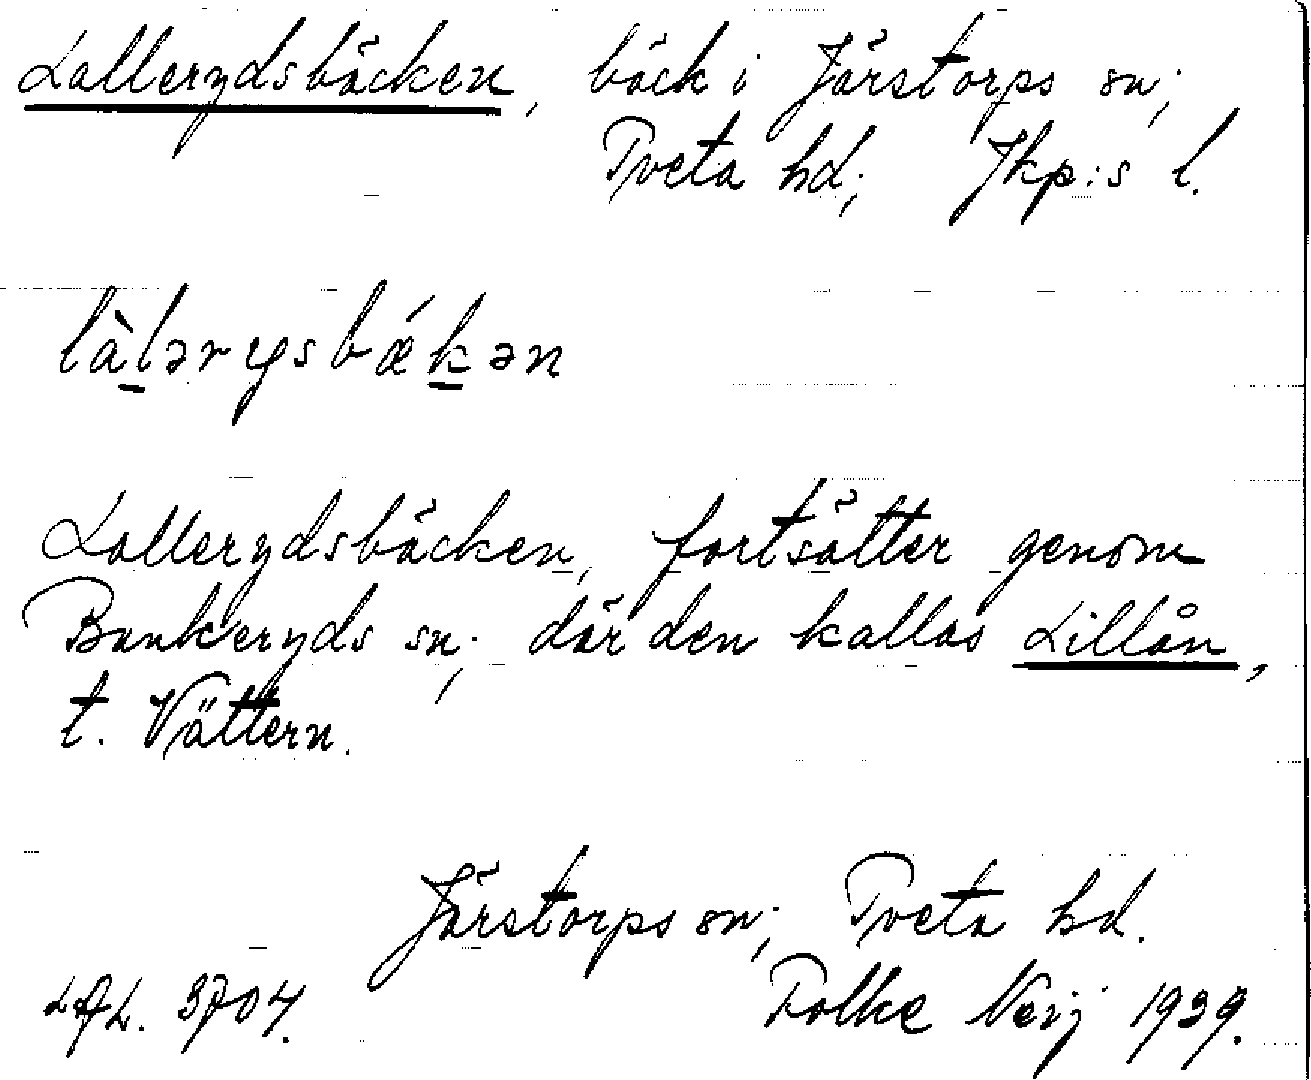 Lallerydsbäcken, bäck i Järstorps sn;
Tveta hd; Jkp:s l.
làl̲ərysbǽk̲ən
Lallerydsbäcken, fortsätter genom
Bankeryds sn; där den kallas Lillån,
t. Vättern.
Järstorps sn; Tveta hd.
3704. Folke Neij 1939.